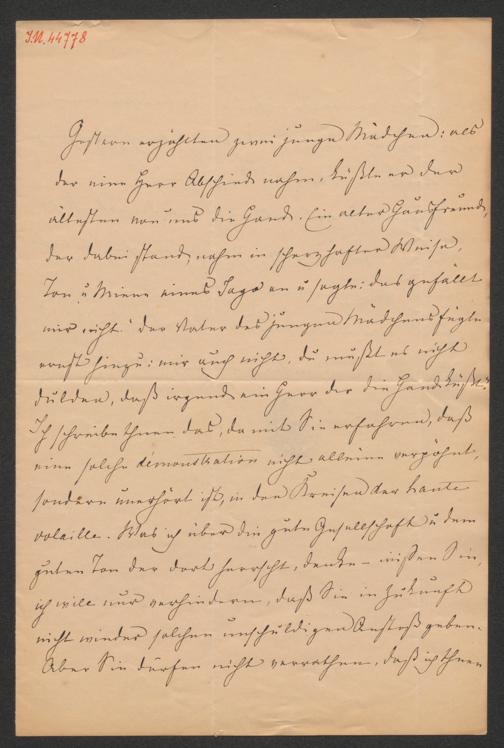 I.N. 44778
Gestern erzählten zwei junge Mädchen: als
der eine Herr Abschied nahm, küßte er der
ältesten von uns die Hand. Ein alter Hausfreund,
der dabei stand, nahm in scherzhafter Weise,
Ton u Miene eines Jago an u sagte: das gefällt
mir nicht. der Vater des jungen Mädchens fügte
ernst hinzu: mir auch nicht, du mußt es nicht
dulden, daß irgend ein Herr dir die Hand küßt."
Ich schreibe Ihnen das, damit Sie erfahren, daß
eine solche demonstration nicht alleine verpöhnt,
sondern unerhört ist, in den Kreisen der haute
volaille. Was ich über die gute Gesellschaft u dem
guten Ton der dort herrscht, denke – wissen Sie,
ich will nur verhindern, daß Sie in Zukunft
nicht wieder solchen unschuldigen Anstoß geben.
Aber Sie dürfen nicht verrathen, daß ich Ihnen